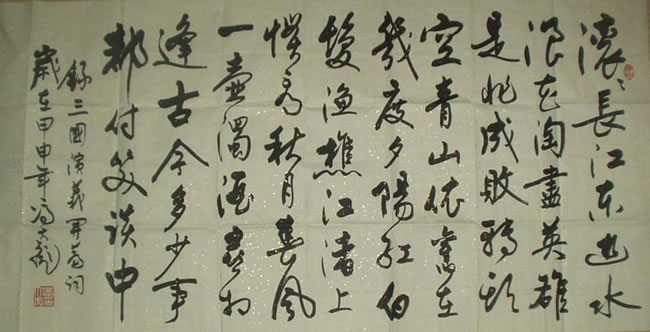 滚々長江东逝水
浪花淘盡英雄
是非成敗转頭
空青山依舊在
幾度夕陽红白
髮渔樵江渚上
惯看秋月春風
一壶濁酒喜相
逢古今多少事
都付笑谈中
錄三國演義開篇词
歲在甲申年冯大